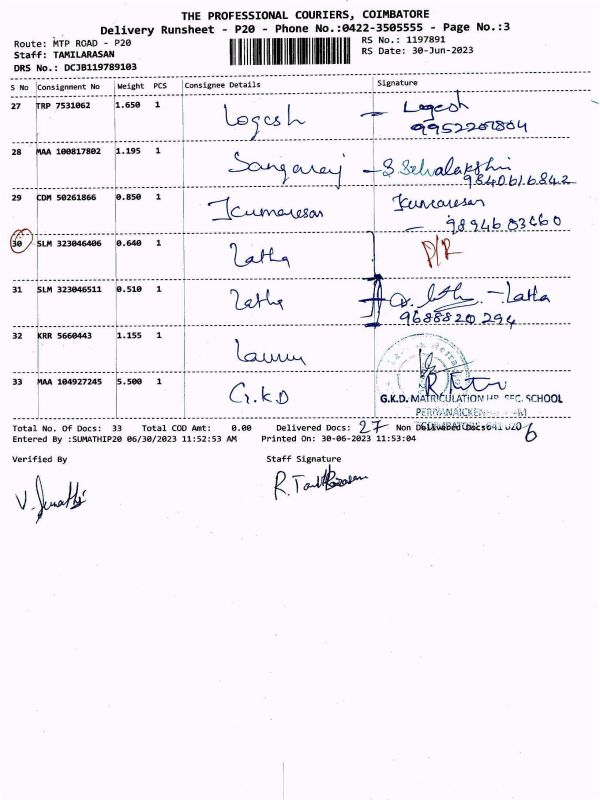 THE PROFESSIONAL COURIERS, COIMBATORE
Delivery Runsheet - P20 - Phone No.:0422-3505555 - Page No.:3
Route: MTP ROAD - P20
RS No.: 1197891
Staff: TAMILARASAN
RS Date: 30-Jun-2023
DRS No.: DCJB119789103
S No Consignment No Weight PCS Consignee Details Signature
27 TRP 7531062 1.650 1 Logesh - Logesh
9952201804
28 MAA 100817802 1.195 1 Sangaraj - S Selvalakshmi
9840616842
29 CDM 50261866 0.850 1 Kumaresan Kumaresan
- 9894603660
30 SLM 323046406 0.640 1 Latha P/R
31 SLM 323046511 0.510 1 Latha - Latha
9688820294
32 KRR 5660443 1.155 1
33 MAA 104927245 5.500 1 G.K.D
G.K.D. MATRICULATION HR. SEC. SCHOOL
Total No. Of Docs: 33 Total COD Amt: 0.00 Delivered Docs: 27 Non Delivered Docs: 6
Entered By :SUMATHIP20 06/30/2023 11:52:53 AM Printed On: 30-06-2023 11:53:04
Verified By Staff Signature